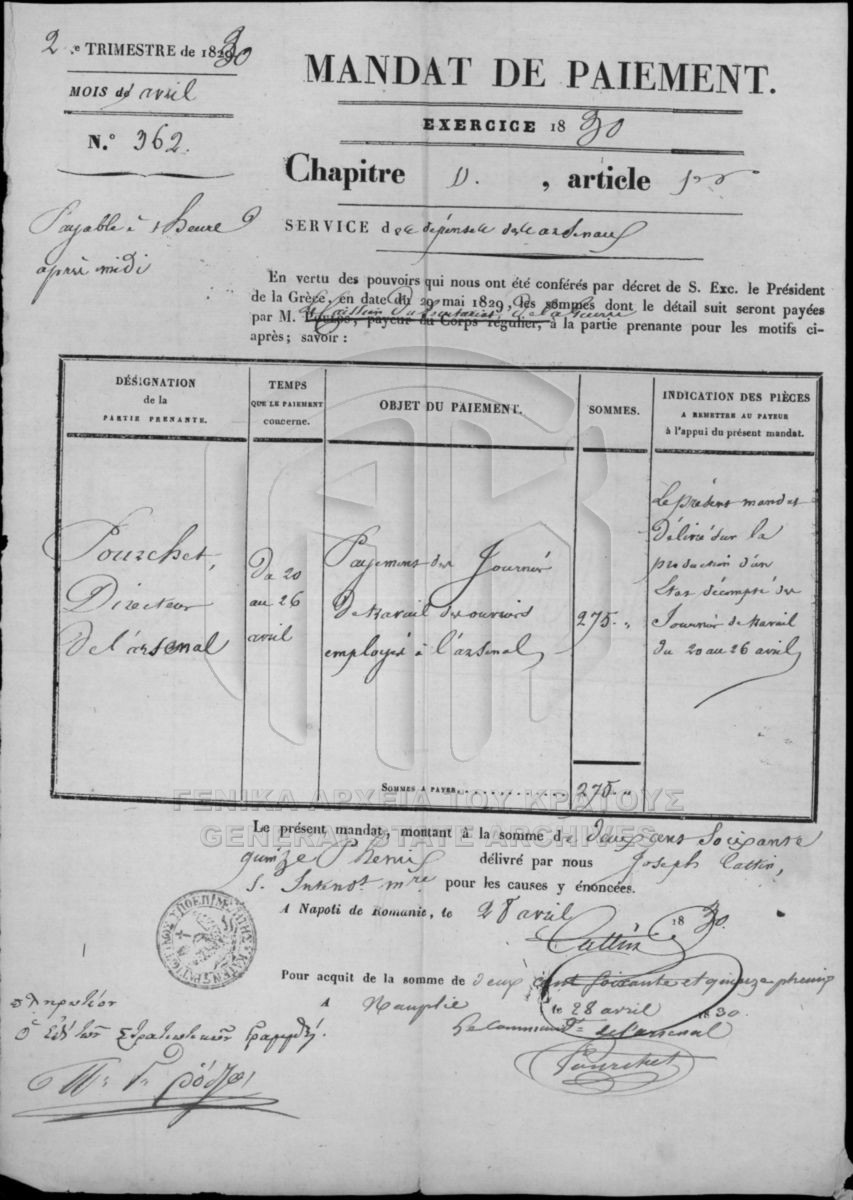 2.e TRIMESTRE de 1830
MOIS d' avril
N.o 362.
Payable à 1 heure
après midi
MANDAT DE PAIEMENT.
EXERCICE 1830
Chapitre V. , article 1er
SERVICE des dépenses des arsenaux
En vertu des pouvoirs qui nous ont été conférés par décret de S. Exc. le Président
de la Grèce, en date du 29 mai 1829, les sommes dont le détail suit seront payées
par M. payeur du Corps régulier, à la partie prenante pour les motifs ci-
après; savoir :
DÉSIGNATION
de la
PARTIE PRENANTE.
TEMPS
QUE LE PAIEMENT
concerne.
OBJET DU PAIEMENT.
SOMMES.
INDICATION DES PIÈCES
A REMETTRE AU PAYEUR
à l'appui du présent mandat.
Pourchet,
Directeur
de l'arsenal
Du 20
au 26
avril
Payement des Journées
de travail des ouvriers
employés à l'arsenal
275 "
Le présent mandat
délivré sur la
production d'un
Etat décompté des
Journées de travail
du 20 au 26 avril
SOMMES A PAYER,
275 "
ΓΕΝΙΚΑ ΑΡΧΕΙΑ ΤΟΥ ΚΡΑΤΟΥΣ
GENERAL STATE ARCHIVES
Le présent mandat, montant à la somme de deux cent soixante
quinze Phenix délivré par nous Joseph Cattin,
s. Intendt mre pour les causes y énoncées.
A Napoli de Romanie, le 28 avril 1830.
Cattin
Pour acquit de la somme de deux cent soixante et quinze phenix
A Nauplie le 28 avril 1830.
Le Commandt de l'arsenal
Pourchet
πληρωτέον
ὁ ἐπὶ τῶν Στρατιωτικῶν Γραμμ.